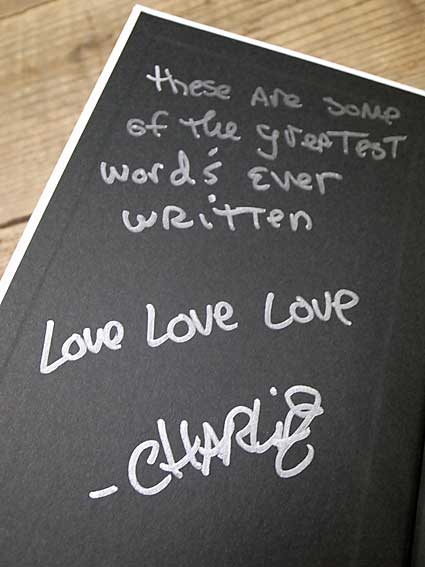 these are some
of the greatest
words ever
written
Love Love Love
- CHARLiE